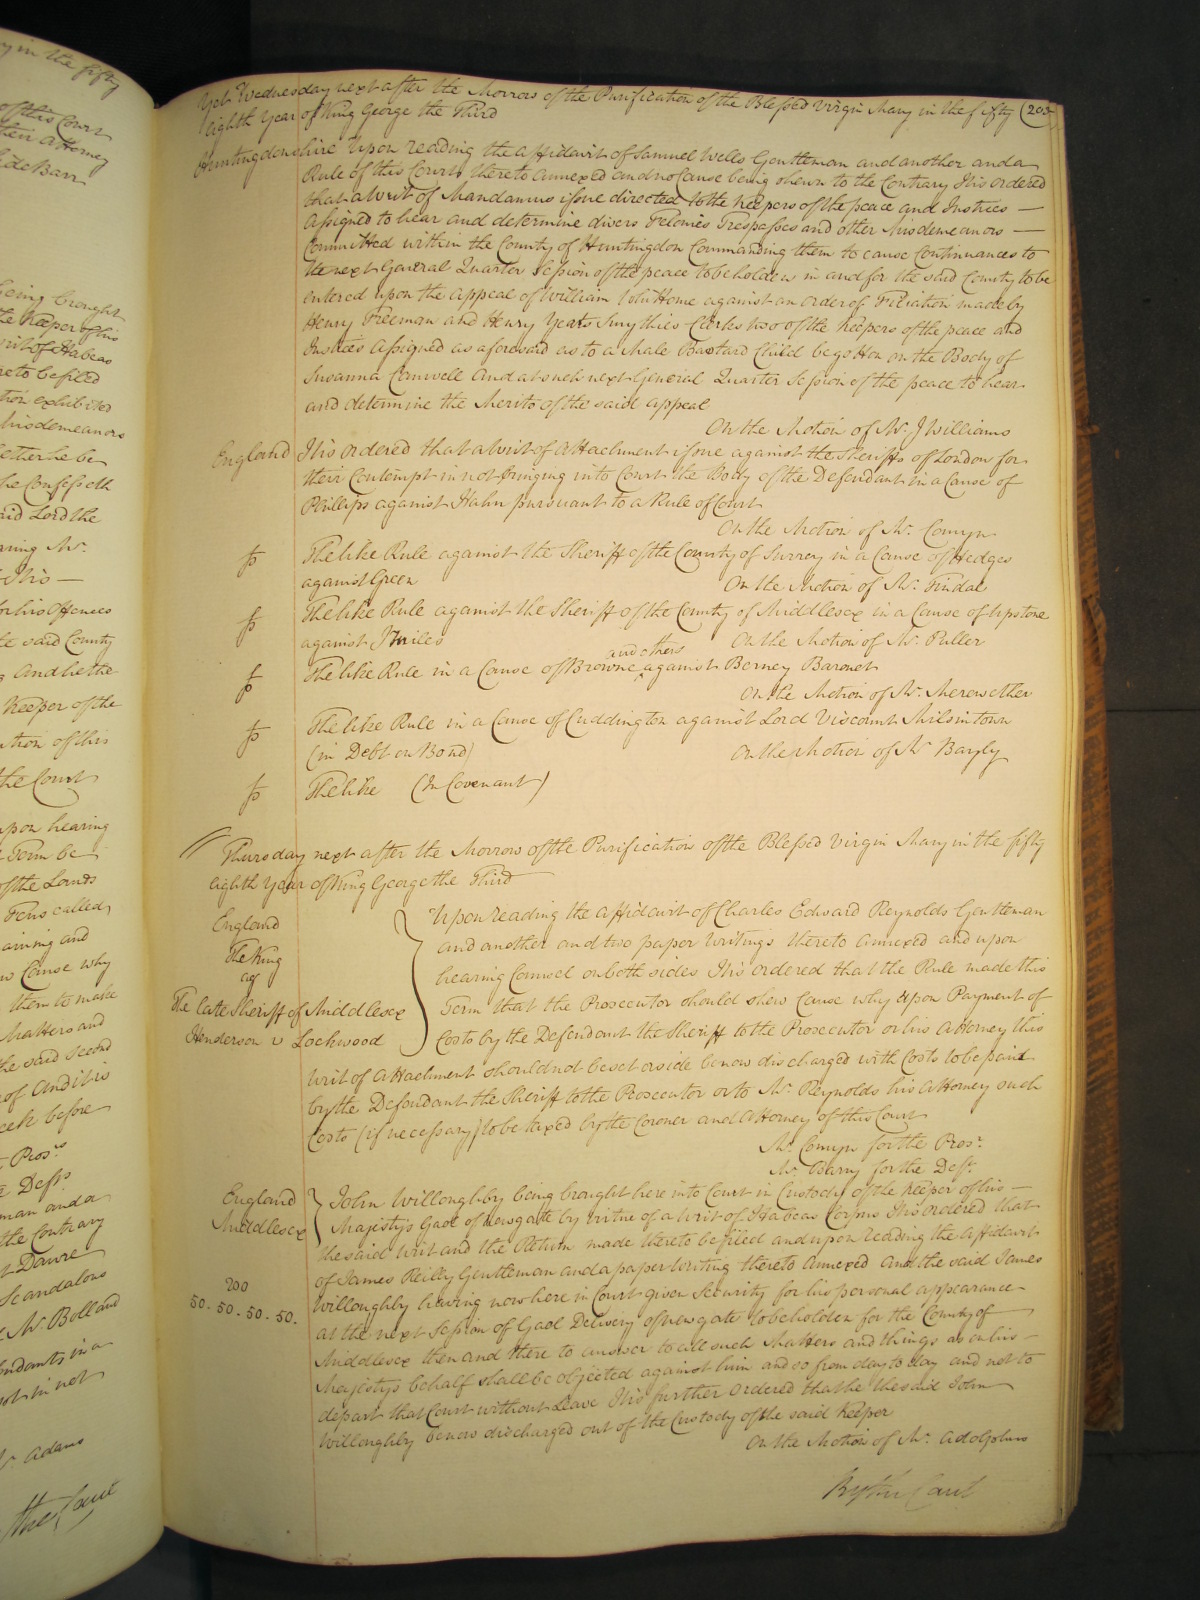 Yet Wednesday next after the Morrow of the Purification of the Blessed Virgin Mary in the fifty (203
eighth Year of King George the Third
Huntingdonshire Upon reading the Affidavit of Samuel Wells Gentleman and another and a
Rule of this Court thereto annexed and no Cause being shewn to the Contrary It is ordered
that a Writ of Mandamus issue directed to the Keepers of the peace and Justices —
Assigned to hear and determine divers Felonies Trespasses and other Misdemeanors —
Committed within the County of Huntingdon Commanding them to cause Continuances to
the next General Quarter Session of the peace to be holden in and for the said County to be
entered upon the Appeal of William John Home against an order of Filiation made by
Henry Freeman and Henry Yeats Smythies Clerks two of the Keepers of the peace and
Justices Assigned as aforesaid as to a Male Bastard Child begotten on the Body of
Susanna Cranwell And at such next General Quarter Session of the peace to hear
and determine the Merits of the said appeal
On the Motion of Mr. J Williams
England It is ordered that a Writ of Attachment issue against the Sheriffs of London for
their Contempt in not bringing into Court the Body of the Defendant in a Cause of
Phillips against Hahn pursuant to a Rule of Court
On the Motion of Mr. Comyn
fs The like Rule against the Sheriff of the County of Surrey in a Cause of Hedges
against Green On the Motion of Mr. Tindal
fs The like Rule against the Sheriff of the County of Middlesex in a Cause of Upstone
against J Miles On the Motion of Mr. Puller
and others
fs The like Rule in a Cause of Browne against Berney Baronet
On the Motion of Mr. Merewether
fs The like Rule in a Cause of Cuddington against Lord Viscount Milsintown
(in Debt on Bond) On the Motion of Mr. Bayly
fs The like (In Covenant)
Thursday next after the Morrow of the Purification of the Blessed Virgin Mary in the fifty
eighth Year of King George the Third
England
The King
agt
The late Sheriff of Middlesex
Henderson v Lockwood
Upon reading the Affidavit of Charles Edward Reynolds Gentleman
and another and two paper Writings thereto annexed and upon
hearing Counsel on both sides It is ordered that the Rule made this
Term that the Prosecutor should shew Cause why upon Payment of
Costs by the Defendant the Sheriff to the Prosecutor or his Attorney this
Writ of Attachment should not be set aside be now discharged with Costs to be paid
by the Defendant the Sheriff to the Prosecutor or to Mr. Reynolds his Attorney such
Costs (if necessary) to be taxed by the Coroner and Attorney of this Court
Mr. Comyn for the Pros:r
Mr. Barry for the Deft.
England
Middlesex
John Willoughby being brought here into Court in Custody of the Keeper of his —
Majesty's Gaol of Newgate by virtue of a Writ of Habeas Corpus It is ordered that
the said Writ and the Return made thereto be filed and upon reading the Affidavit
of James Reilly Gentleman and a paper writing thereto annexed And the said James
200
50. 50. 50. 50.
Willoughby having now here in Court given Security for his personal appearance
at the next Session of Gaol Delivery of Newgate to be holden for the County of
Middlesex then and there to answer to all such Matters and things as on his —
Majestys behalf shall be objected against him and so from day to day and not to
depart that Court without Leave It is further ordered that he the said John
Willoughby be now discharged out of the Custody of the said Keeper
On the Motion of Mr. Adolphus
By the Court